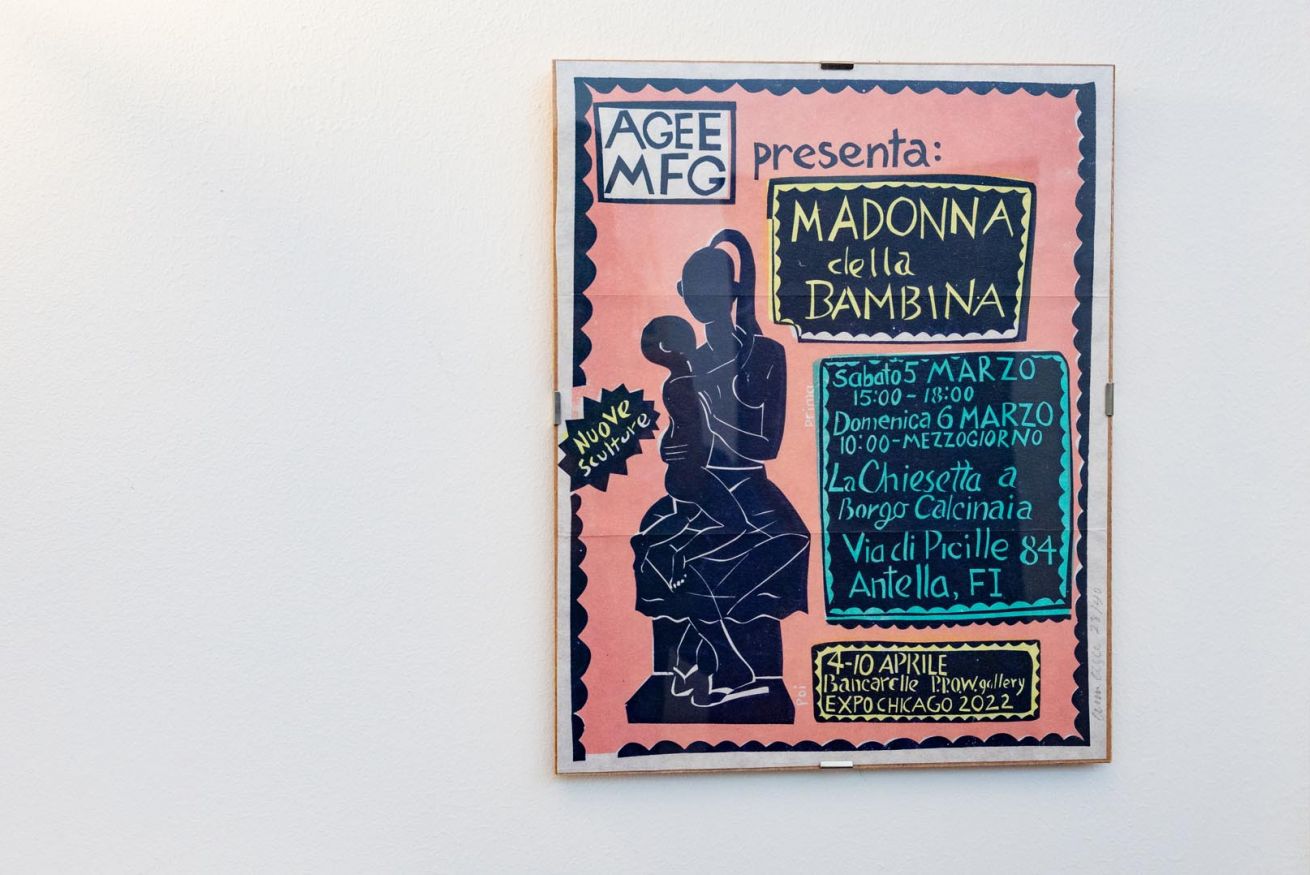 AGEE
MFG
presenta:
MADONNA
della
BAMBINA
Nuove
Sculture
Prima
Sabato 5 MARZO
15:00 - 18:00
Domenica 6 MARZO
10:00 - MEZZOGIORNO
La Chiesetta a
Borgo Calcinaia
Via di Picille 84
Antella, FI
Poi
4-10 APRILE
Bancarelle P.P.O.W. gallery
EXPO CHICAGO 2022
28/40